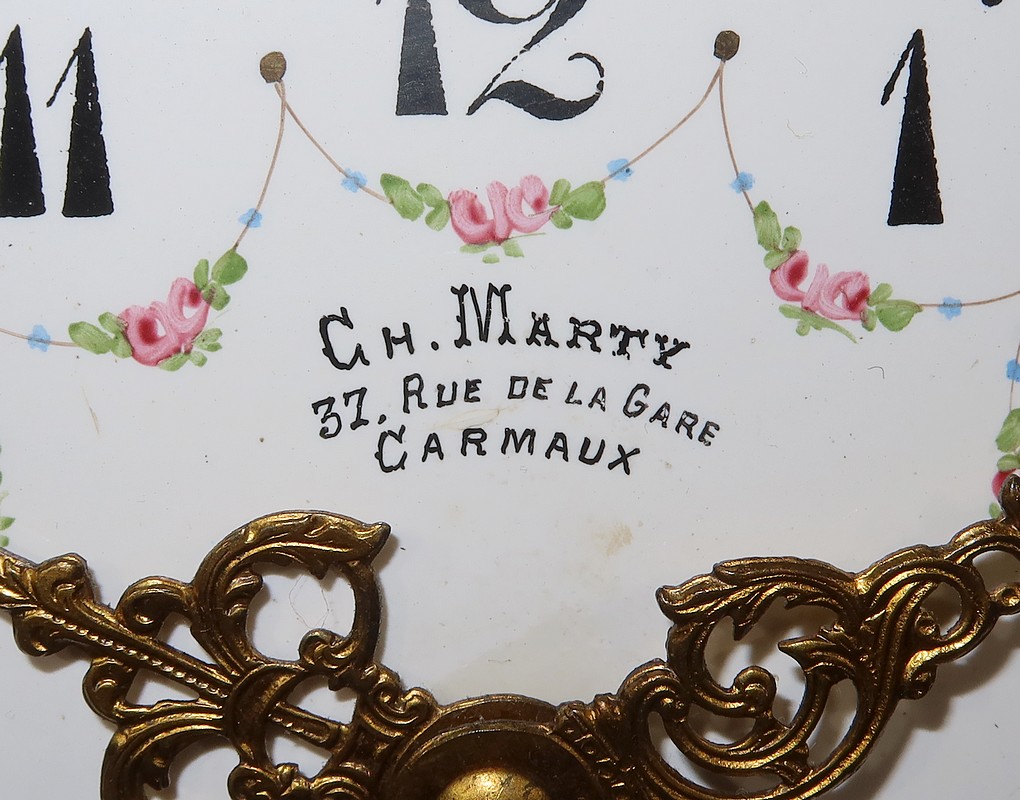 11 12 1
CH. MARTY
37, RUE DE LA GARE
CARMAUX